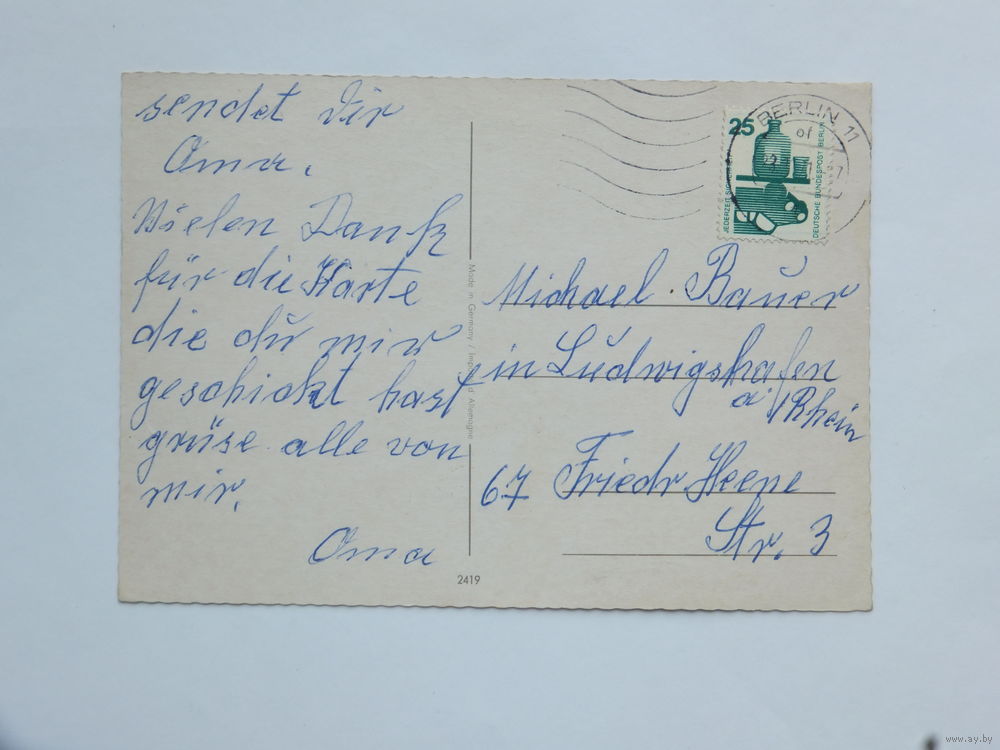 sendet Dir
Oma.
Vielen Dank
für die Karte
die dü mir
geschickt hast
grüse alle von
mir.
Oma
2419
Made in Germany / Imprimé d'Allemagne
25
JEDERZEIT SICHERHEIT
DEUTSCHE BUNDESPOST BERLIN
BERLIN 11
of
Michael Baŭer
in Lŭdwigshafen
a/Rhein
67 Friedr. Heene
Str. 3
www.ay.by